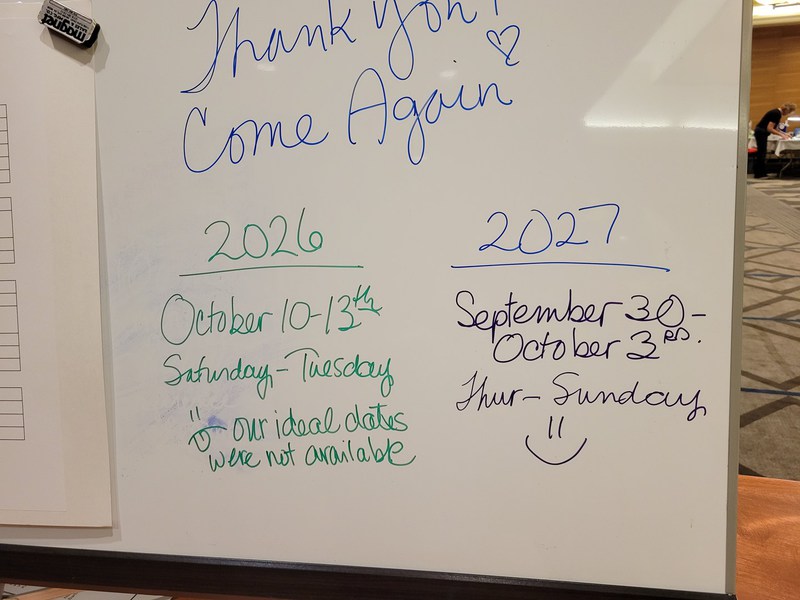 Thank you!
Come Again
2026
October 10-13th
Saturday-Tuesday
our ideal dates
were not available
2027
September 30-
October 3RD.
Thur-Sunday
magnet